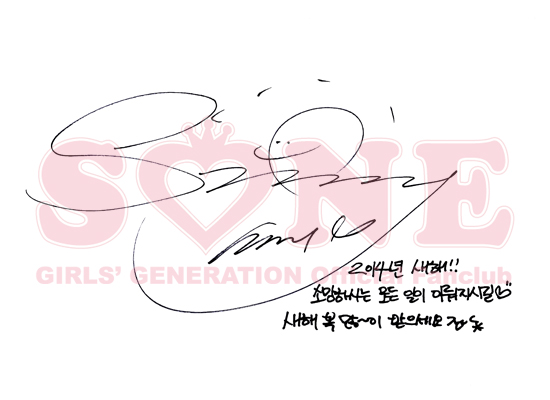 SONE
GIRLS' GENERATION Official Fanclub
2014년 새해!!
소망하시는 모든 일이 이뤄지시길♡
새해 복 많~이 받으세요